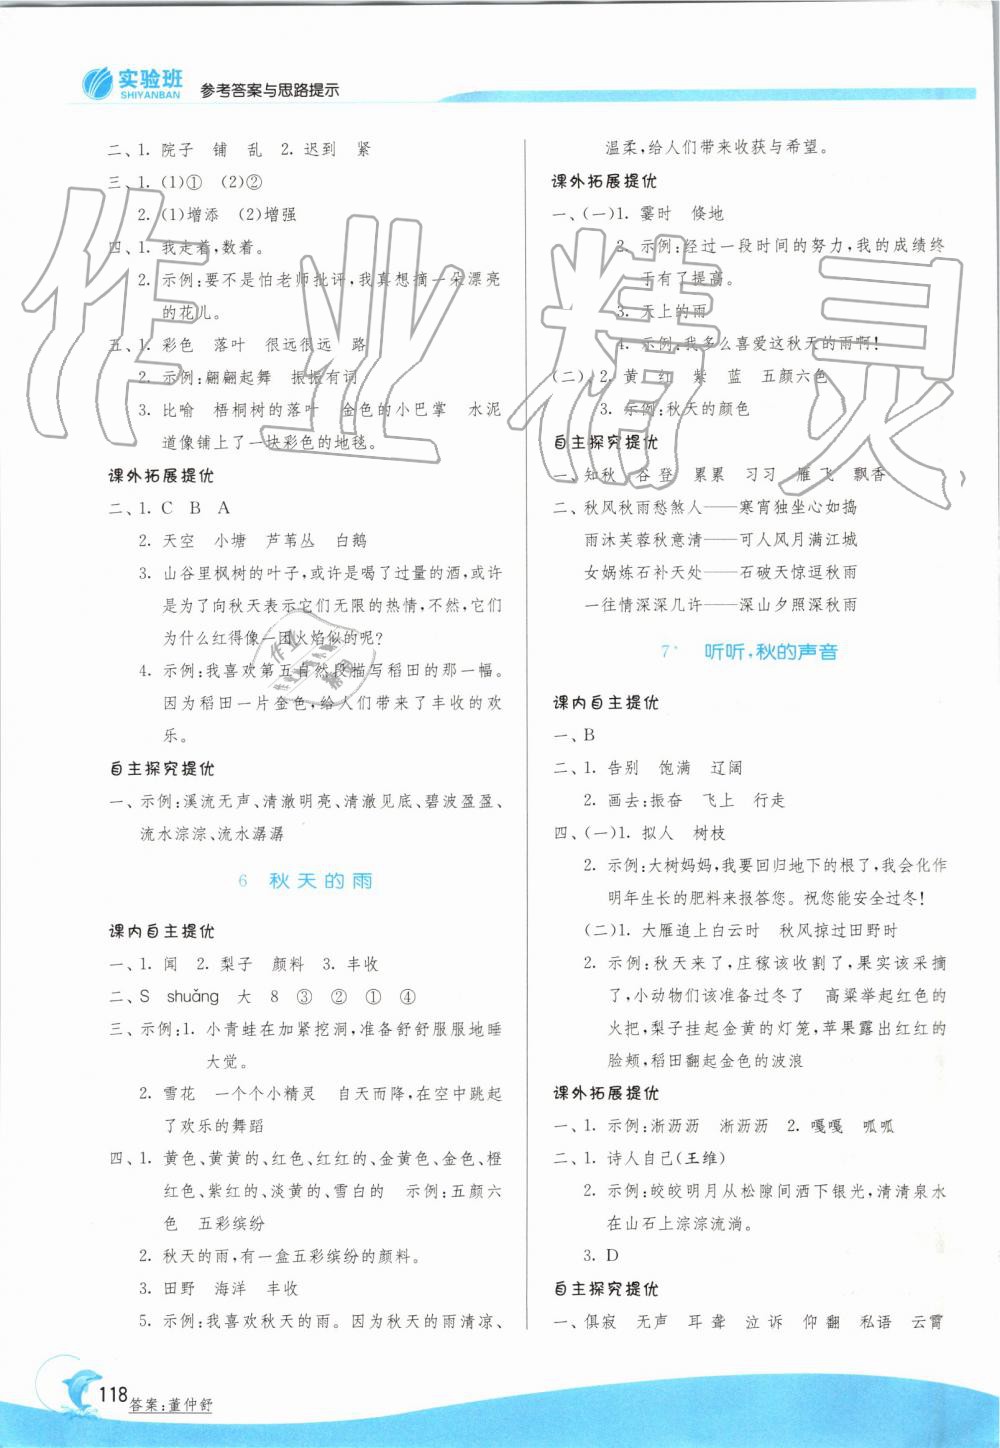 实验班
SHIYANBAN
参考答案与思路提示
二、1. 院子 铺 乱 2. 迟到 紧
三、1. (1)① (2)②
2. (1)增添 (2)增强
四、1. 我走着,数着。
2. 示例:要不是怕老师批评,我真想摘一朵漂亮
的花儿。
五、1. 彩色 落叶 很远很远 路
2. 示例:翩翩起舞 振振有词
3. 比喻 梧桐树的落叶 金色的小巴掌 水泥
道像铺上了一块彩色的地毯。
课外拓展提优
二、1. C B A
2. 天空 小塘 芦苇丛 白鹅
3. 山谷里枫树的叶子,或许是喝了过量的酒,或许
是为了向秋天表示它们无限的热情,不然,它们
为什么红得像一团火焰似的呢?
4. 示例:我喜欢第五自然段描写稻田的那一幅。
因为稻田一片金色,给人们带来了丰收的欢
乐。
自主探究提优
一、示例:溪流无声、清澈明亮、清澈见底、碧波盈盈、
流水淙淙、流水潺潺
6 秋天的雨
课内自主提优
一、1. 闻 2. 梨子 颜料 3. 丰收
二、S shuāng 大 8 ③ ② ① ④
三、示例:1. 小青蛙在加紧挖洞,准备舒舒服服地睡
大觉。
2. 雪花 一个个小精灵 自天而降,在空中跳起
了欢乐的舞蹈
四、1. 黄色、黄黄的、红色、红红的、金黄色、金色、橙
红色、紫红的、淡黄的、雪白的 示例:五颜六
色 五彩缤纷
2. 秋天的雨,有一盒五彩缤纷的颜料。
3. 田野 海洋 丰收
5. 示例:我喜欢秋天的雨。因为秋天的雨清凉、
温柔,给人们带来收获与希望。
课外拓展提优
一、(一)1. 霎时 倏地
2. 示例:经过一段时间的努力,我的成绩终
于有了提高。
3. 天上的雨
4. 示例:我多么喜爱这秋天的雨啊!
(二) 2. 黄 红 紫 蓝 五颜六色
3. 示例:秋天的颜色
自主探究提优
一、知秋 谷登 累累 习习 雁飞 飘香
二、秋风秋雨愁煞人——寒宵独坐心如捣
雨沐芙蓉秋意清——可人风月满江城
女娲炼石补天处——石破天惊逗秋雨
一往情深深几许——深山夕照深秋雨
7* 听听,秋的声音
课内自主提优
一、B
二、1. 告别 饱满 辽阔
2. 画去:振奋 飞上 行走
四、(一)1. 拟人 树枝
2. 示例:大树妈妈,我要回归地下的根了,我会化作
明年生长的肥料来报答您。祝您能安全过冬!
(二)1. 大雁追上白云时 秋风掠过田野时
2. 示例:秋天来了,庄稼该收割了,果实该采摘
了,小动物们该准备过冬了 高粱举起红色的
火把,梨子挂起金黄的灯笼,苹果露出红红的
脸颊,稻田翻起金色的波浪
课外拓展提优
一、1. 示例:淅沥沥 淅沥沥 2. 嘎嘎 呱呱
二、1. 诗人自己(王维)
2. 示例:皎皎明月从松隙间洒下银光,清清泉水
在山石上淙淙流淌。
3. D
自主探究提优
一、俱寂 无声 耳聋 泣诉 仰翻 私语 云霄
118
答案:董仲舒
作业精灵